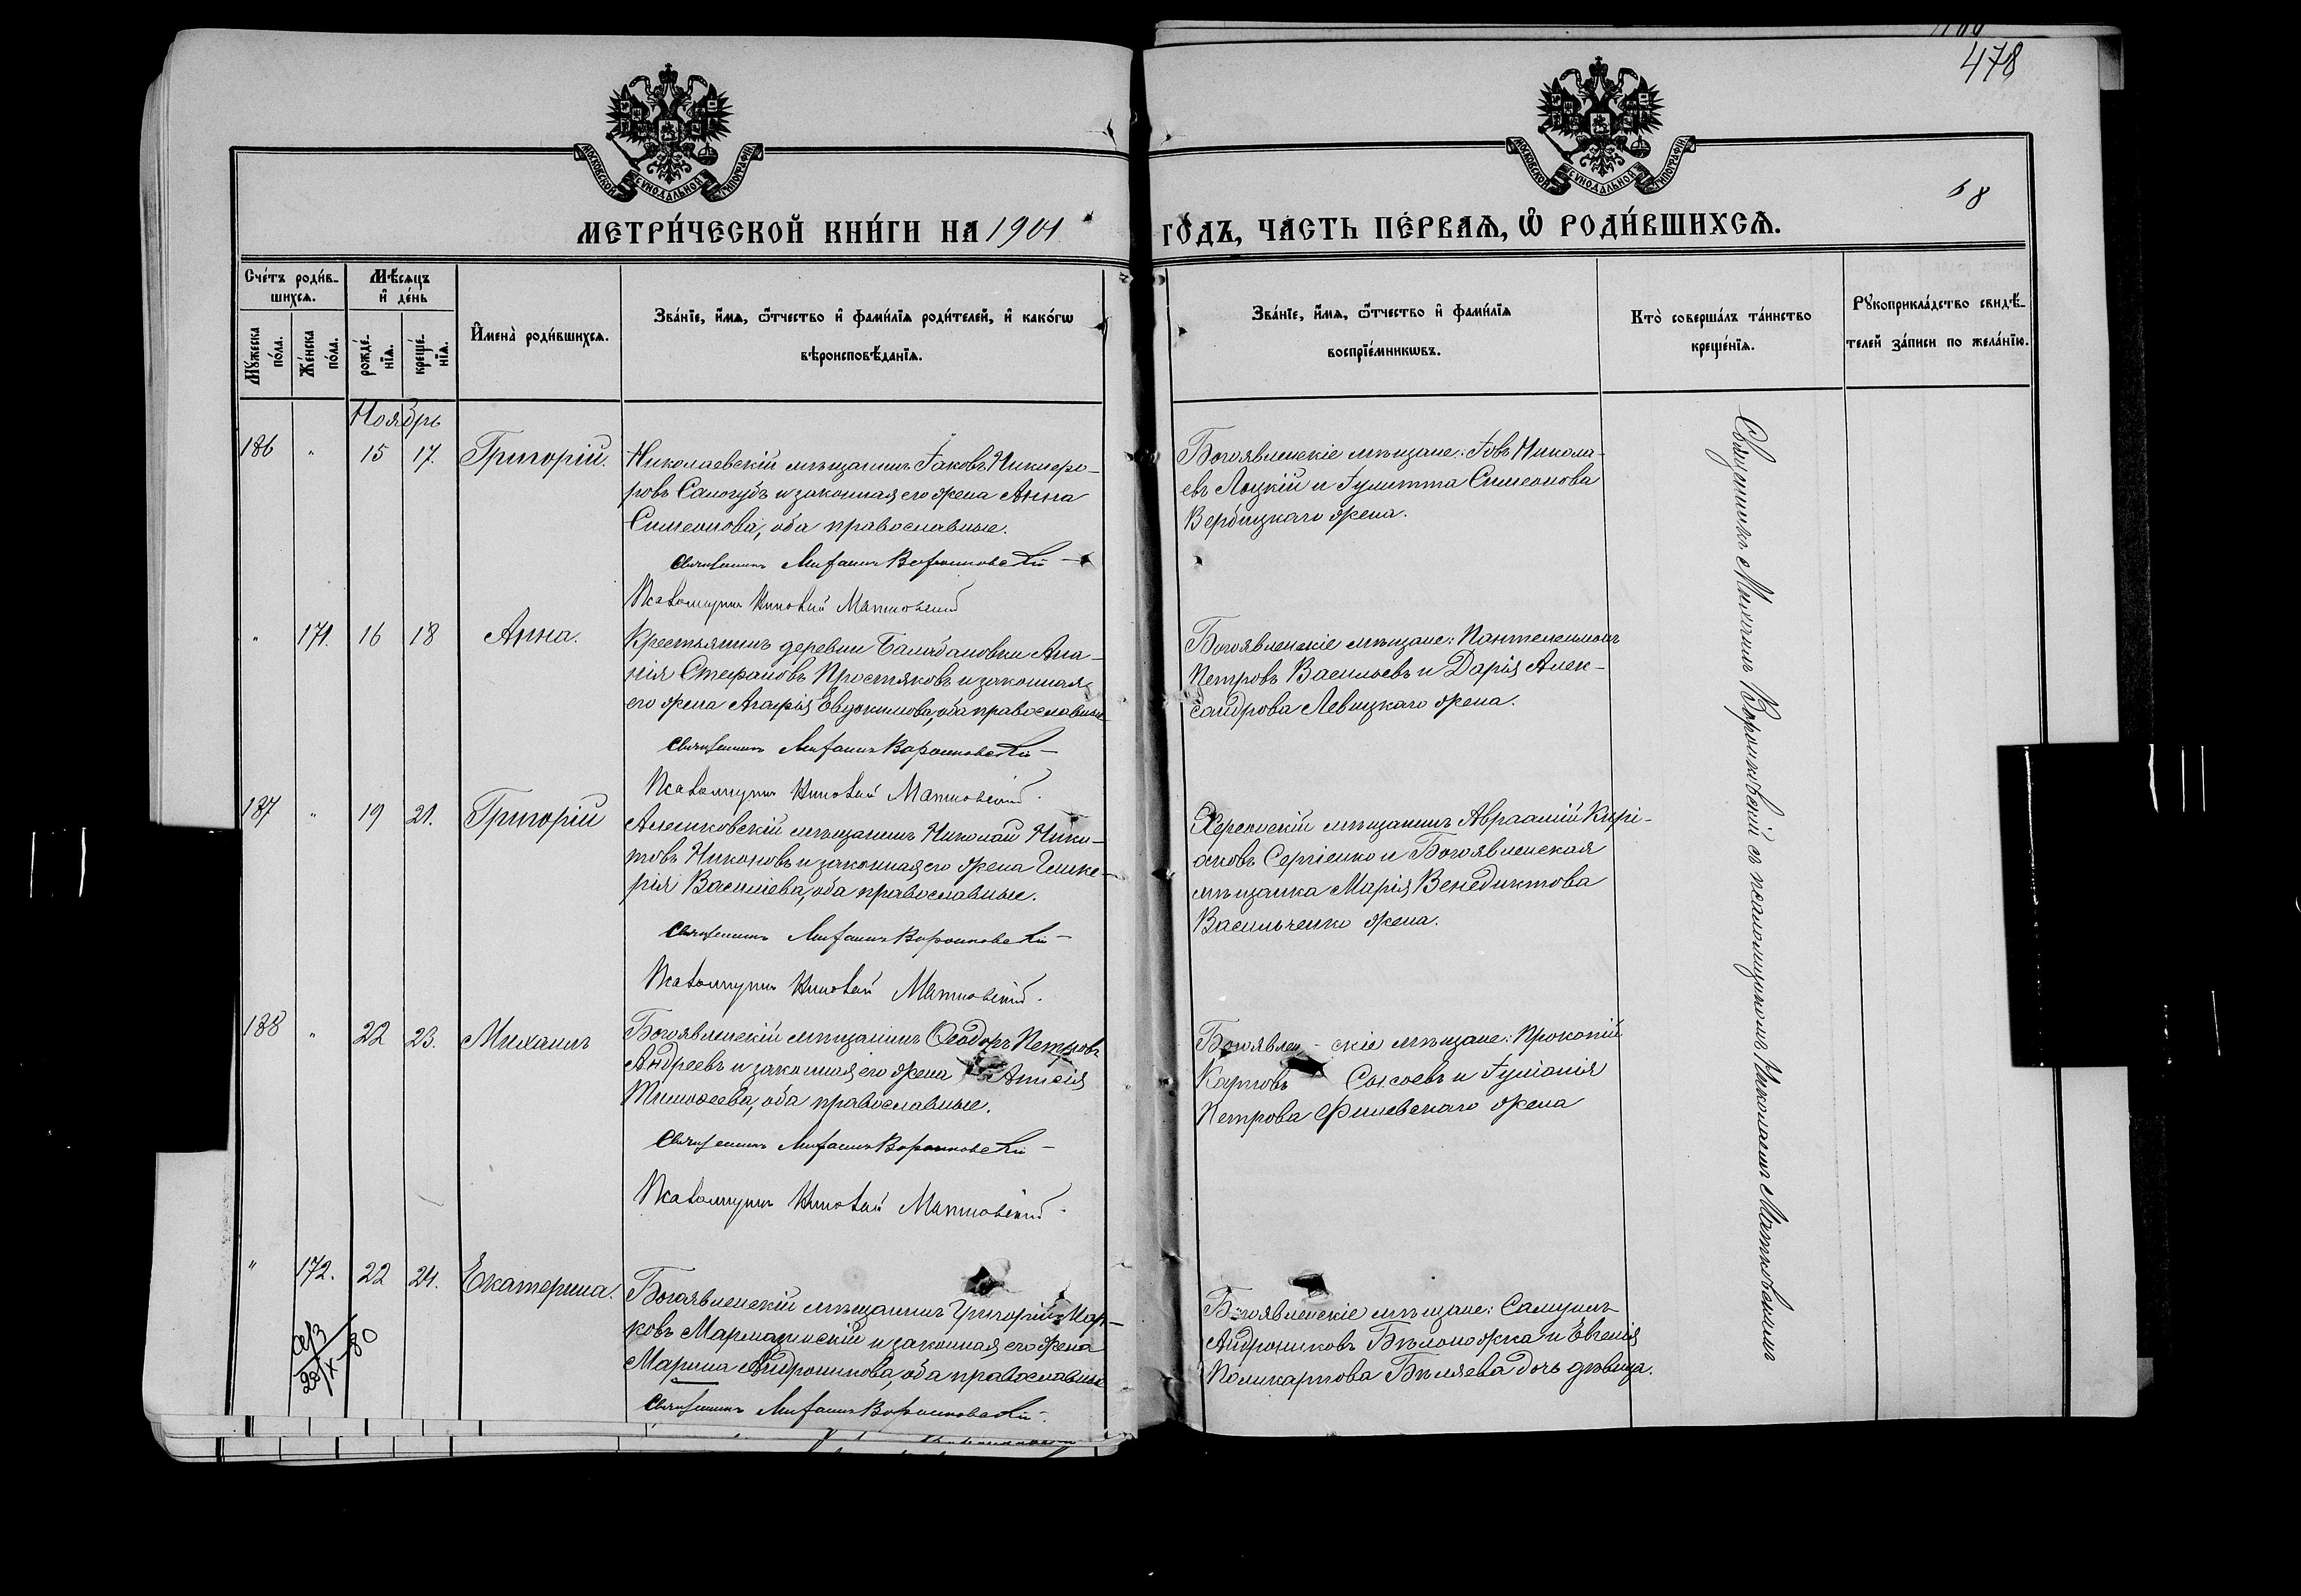 478
МОСКОВСКОЙ СѴНОДАЛЬНОЙ ТИПОГРАФІИ
МОСКОВСКОЙ СѴНОДАЛЬНОЙ ТИПОГРАФІИ
МЕТРИ́ЧЕСКОЙ КНИ́ГИ НА 1901
ГО́ДЪ, ЧА́СТЬ ПЕ́РВАѦ, Ѡ҆ РОДИ́ВШИХСѦ.
Сче́тъ роди́в-
шихсѧ.
Мѣ́сѧцъ
и҆ де́нь
Мꙋ́жеска
по́ла.
Же́нска
по́ла.
рожде́-
нїѧ.
креще́-
нїѧ.
И҆мена̀ роди́вшихсѧ.
Зва́нїе, и҆́мѧ, ѻ҆́тчество и҆ фами́лїѧ роди́телей, и҆ како́гѡ
вѣроисповѣ́данїѧ.
Зва́нїе, и҆́мѧ, ѻ҆́тчество и҆ фами́лїѧ
воспрїе́мникѡвъ.
Кто̀ соверша́лъ та́инство
креще́нїѧ.
Рꙋкоприкла́дство свидѣ́-
телей за́писи по жела́нїю.
Ноябрь
186 " 15 17. Григорій.
Николаевскій мѣщанинъ Іаковъ Никифо-
ровъ Самогубъ и законная его жена Анна
Симеонова, оба православные.
Священникъ Михаилъ Воронковскій
Псаломщикъ Николай Матковскій
Богоявленскіе мѣщане: Іовъ Никола-
евъ Лоцкій и Іулитта Симеонова
Вербицкаго жена.
" 171. 16 18 Анна.
Крестьянинъ деревни Балабановки Ана-
нія Стефановъ Простяковъ и законная
его жена Агафія Евдокимова, оба православные
Священникъ Михаилъ Воронковскій
Псаломщикъ Николай Матковскій.
Богоявленскіе мѣщане: Пантелеимонъ
Петровъ Васильевъ и Дарія Алек-
сандрова Левицкаго жена.
187 " 19 21. Григорій
Алешковскій мѣщанинъ Николай Ники-
товъ Никоновъ и законная его жена Глике-
рія Василіева, оба православные.
Священникъ Михаилъ Воронковскій
Псаломщикъ Николай Матковскій.
Херсонскій мѣщанинъ Авраамій Кирі-
аковъ Сергіенко и Богоявленская
мѣщанка Марія Венедиктова
Васильченко жена.
188 " 22 23. Михаилъ
Богоявленскій мѣщанинъ Ѳеодоръ Петровъ
Андреевъ и законная его жена Анисія
Тимоѳеева, оба православные.
Священникъ Михаилъ Воронковскій
Псаломщикъ Николай Матковскій.
Богоявлен-скіе мѣщане: Прокопій
Карповъ Сысоевъ и Іуліанія
Петрова Филевскаго жена
" 172. 22 24. Екатерина.
Богоявленскій мѣщанинъ Григорій Мар-
ковъ Мармазинскій и законная его жена
Марина Андроникова, оба православные
Священникъ Михаилъ Воронковскій.
Богоявленскіе мѣщане: Самуилъ
Андрониковъ Бѣлоножка и Евгенія
Поликарпова Бѣляева дочь дѣвица.
Священникъ Михаилъ Воронковскій съ псаломщикомъ Николаемъ Матковскимъ